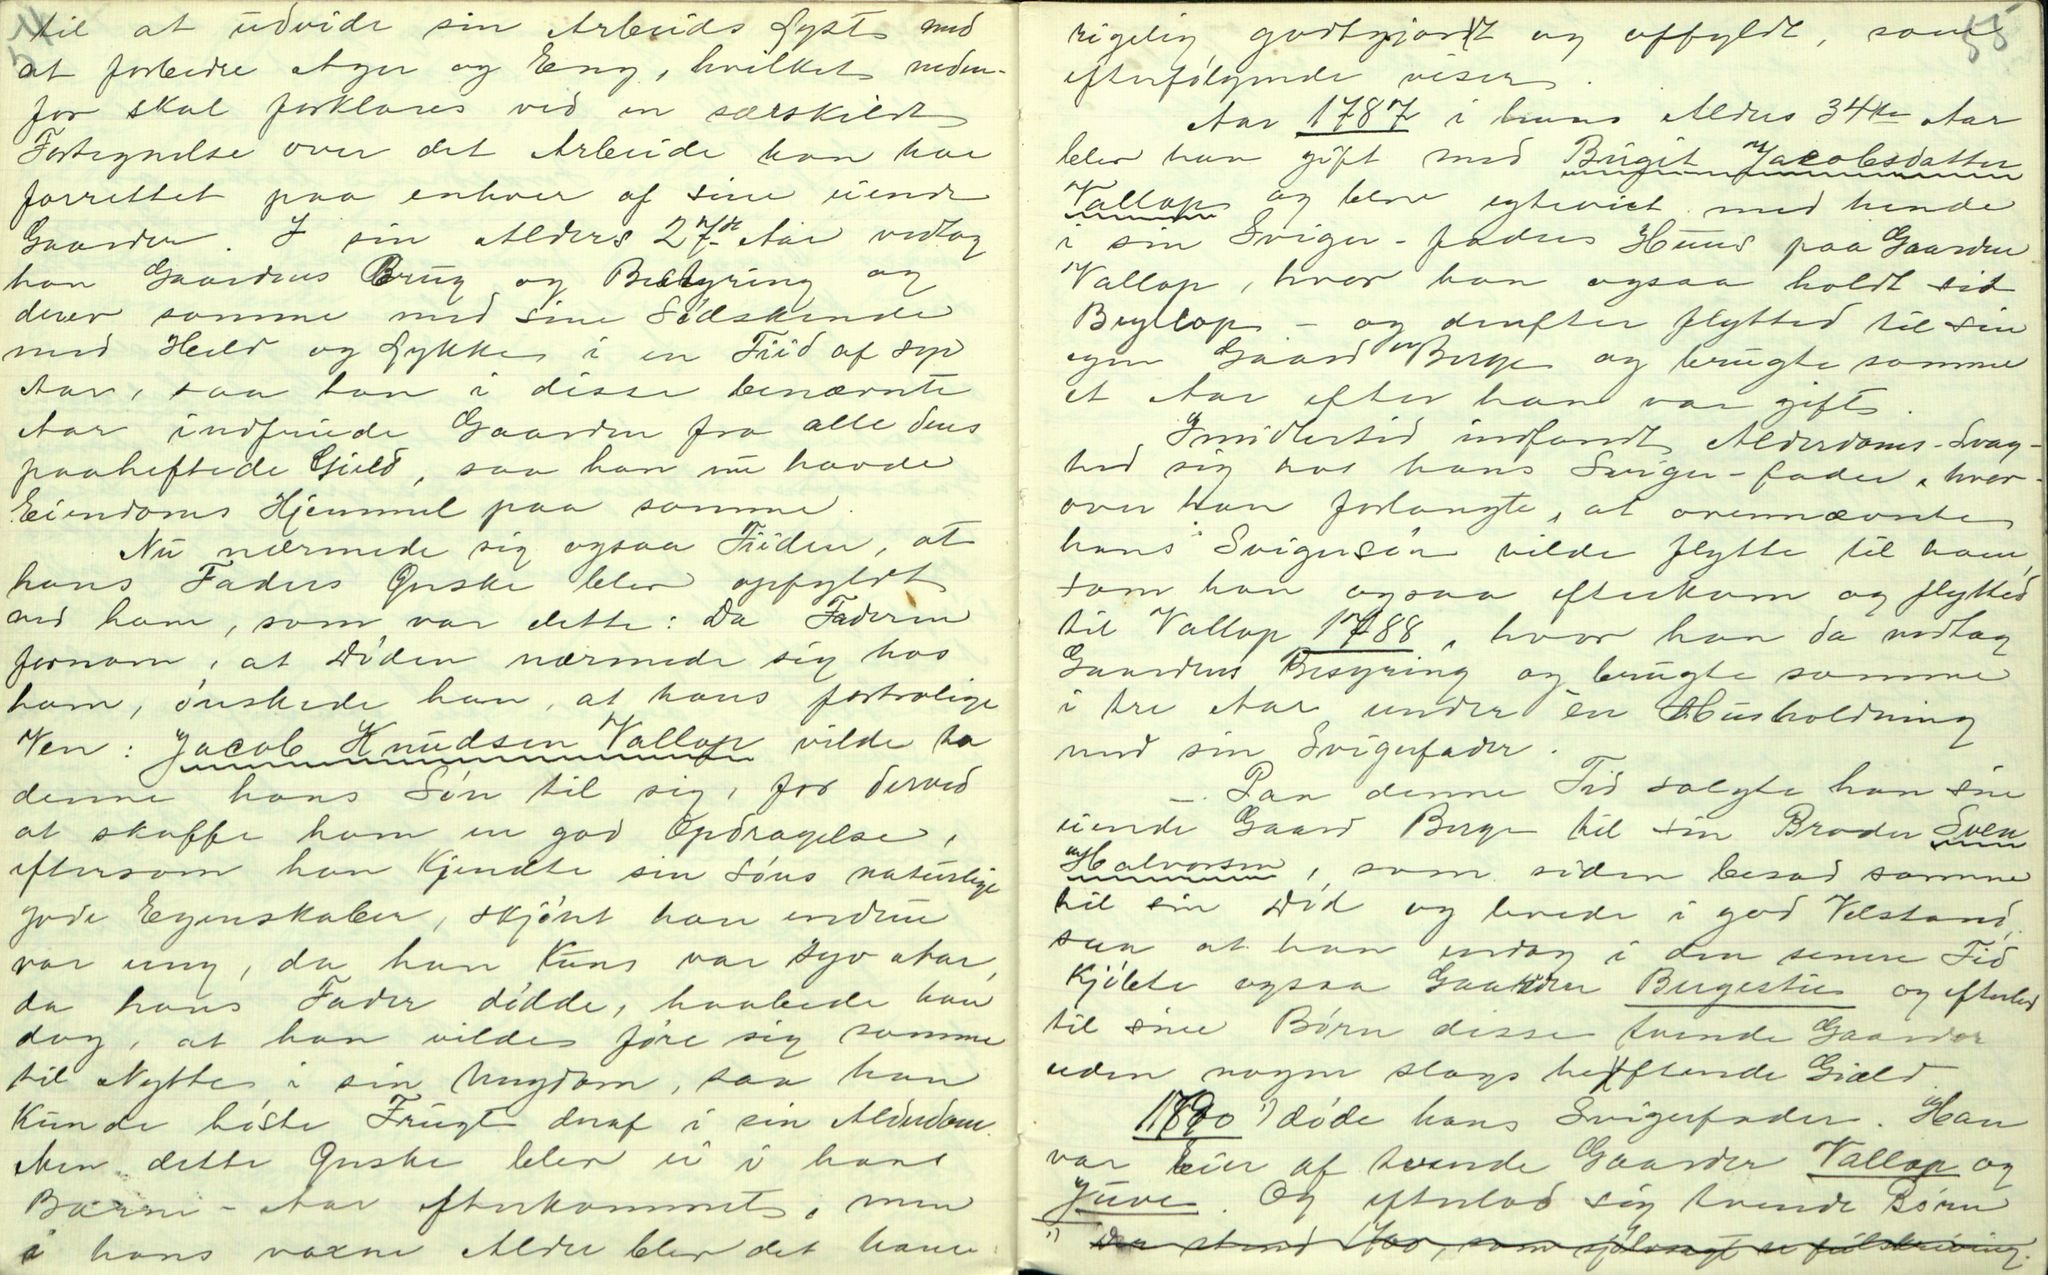 54
til at udvide sin Arbeids Lyst med
at forbedre Ager og Eng, hvilket neden-
for skal forklares ved en særskildt
Fortegnelse over det Arbeide han har
forrettet paa enhver af sine eiende
Gaarder. I sin Alders 27de Aar vedtog
han Gaardens Brug og Bestyring og
derer samme med sine Södskende
med Held og Lykke i en Tiid af syv
Aar, saa han i disse benævnte
Aar indfriede Gaarden fra alle dens
paaheftede Gjeld, saa han nu havde
Eiendoms Hjemmel paa samme.
Nu nærmede sig ogsaa Tiiden, at
hans Faders Ønske blev opfyldt
ved ham, som var dette: Da Faderen
fornam, at Döden nærmede sig hos
ham, önskede han, at hans fortrolige
Ven: Jacob Knudsen Vallop vilde ta
denne hans Sön til sig, for derved
at skaffe ham en god Opdragelse,
eftersom han Kjendte sin Söns naturlige
gode Egenskaber, skjönt han endnu
var ung, da han Kuns var syv Aar,
da hans Fader dödde, haabede han
dog, at han vilde före sig samme
til Nytte i sin Ungdom, saa han
Kunde höste Frugt deraf i sin Alderdom.
Men dette Ønske blev ei i hans
Barne-Aar efterkommet, men
i hans voxne Alder blev det ham
55
rigelig godtgjordt og opfyldt, som
efterfölgende viser.
Aar 1787 i hans Alders 34te Aar
blev han gift med Birgit Jacobsdatter
Vallop og blev egteviet med hende
i sin Sviger-faders Huus paa Gaarden
Vallop, hvor han ogsaa holdt sit
Bryllop - og derefter flytted til sin
egen Gaard Berge og brugte samme
et Aar efter han var gift.
Imidlertid indfandt Alderdoms-Svag-
hed sig hos hans Sviger-fader, hvor-
over han forlangte, at ovennævnte
hans Svigersön vilde flytte til ham,
som han ogsaa efterkom og flytted
til Vallop 1788, hvor han da vedtog
Gaardens Besyring og brugte samme
i tre Aar under en Husholdning
med sin Svigerfader.
- Paa denne Tid solgte han sin
eiende Gaard Berge til sin Broder Sven
Halvorsen, som siden besad samme
til sin Död og levede i god Velstand,
saa at han endog i den senere Tid
Kjöbte ogsaa Gaarden Bergestie og efterlod
til sine Börn disse tvende Gaarder
uden nogen slags heftende Gield.
1790 1) döde hans Svigerfader. Han
var Eier af tvende Gaarder Vallop og
Juve. Og efterlod sig tvende Börn
1) Der stend 1700, som sjölvsagt er feilskriving.